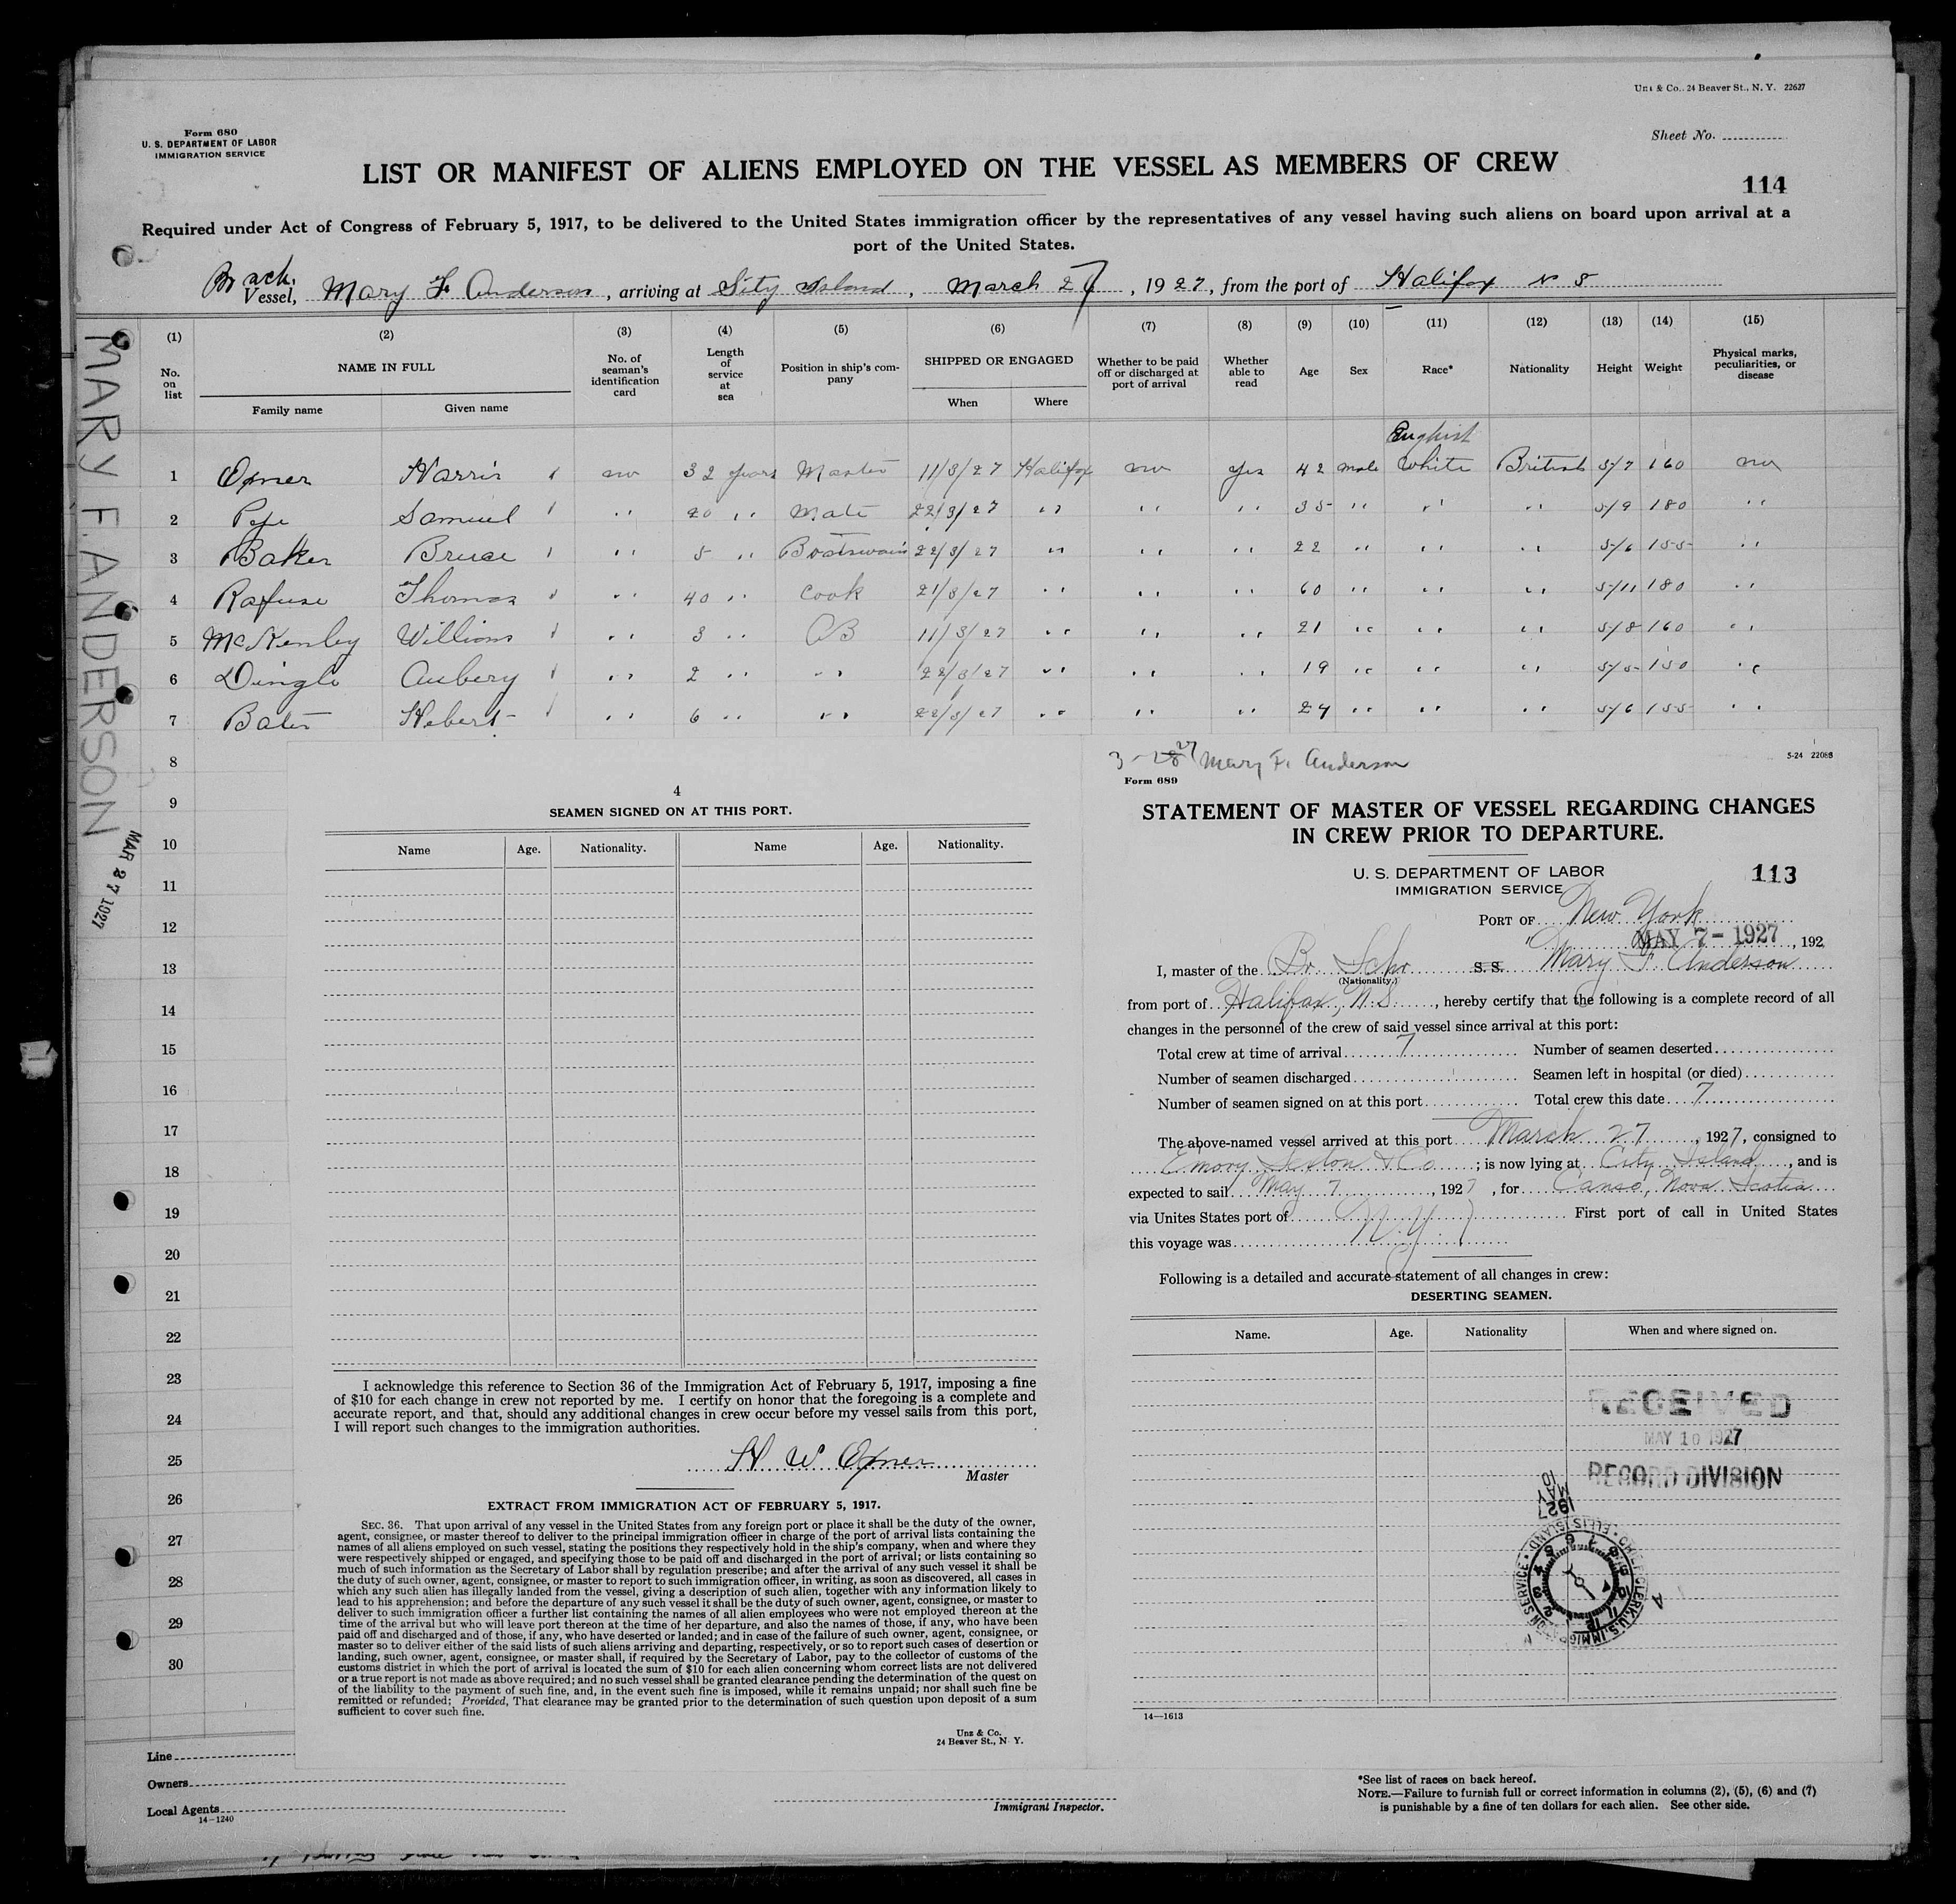 Unz & Co., 24 Beaver St., N. Y. 22627
Form 680
U. S. DEPARTMENT OF LABOR
IMMIGRATION SERVICE
Sheet No.
LIST OR MANIFEST OF ALIENS EMPLOYED ON THE VESSEL AS MEMBERS OF CREW
114
Required under Act of Congress of February 5, 1917, to be delivered to the United States immigration officer by the representatives of any vessel having such aliens on board upon arrival at a
port of the United States.
Br sch. Vessel, Mary F Anderson, arriving at Sity Island, March 27, 1927, from the port of Halifax N S
(1) (2) (3) (4) (5) (6) (7) (8) (9) (10) (11) (12) (13) (14) (15)
No. on list NAME IN FULL No. of seaman's identification card Length of service at sea Position in ship's company SHIPPED OR ENGAGED Whether to be paid off or discharged at port of arrival Whether able to read Age Sex Race* Nationality Height Weight Physical marks, peculiarities, or disease
Family name Given name When Where
English
1 Harris no 32 years Master 11/3/27 Halifax no yes 42 male White British 5/7 160 no
2 Pope Samuel " 20 " Mate 22/3/27 " " " 35 " " " 5/9 180 "
3 Baker Bruce " 5 " Boatswain 22/3/27 " " " 22 " " " 5/6 155 "
4 Rafuse Thomas " 40 " Cook 21/3/27 " " " 60 " " " 5/11 180 "
5 McKenley William " 3 " AB 11/3/27 " " " 21 " " " 5/8 160 "
6 Dingle Aubery " 2 " " 22/3/27 " " " 19 " " " 5/5 150 "
7 Bates Hebert " 6 " " 22/3/27 " " " 24 " " " 5/6 155 "
8
9
10
11
12
13
14
15
16
17
18
19
20
21
22
23
24
25
26
27
28
29
30
MARY F. ANDERSON
MAR 27 1927
4
SEAMEN SIGNED ON AT THIS PORT.
Name Age. Nationality. Name Age. Nationality.
I acknowledge this reference to Section 36 of the Immigration Act of February 5, 1917, imposing a fine
of $10 for each change in crew not reported by me. I certify on honor that the foregoing is a complete and
accurate report, and that, should any additional changes in crew occur before my vessel sails from this port,
I will report such changes to the immigration authorities.
H W
Master
EXTRACT FROM IMMIGRATION ACT OF FEBRUARY 5, 1917.
SEC. 36. That upon arrival of any vessel in the United States from any foreign port or place it shall be the duty of the owner,
agent, consignee, or master thereof to deliver to the principal immigration officer in charge of the port of arrival lists containing the
names of all aliens employed on such vessel, stating the positions they respectively hold in the ship's company, when and where they
were respectively shipped or engaged, and specifying those to be paid off and discharged in the port of arrival; or lists containing so
much of such information as the Secretary of Labor shall by regulation prescribe; and after the arrival of any such vessel it shall be
the duty of such owner, agent, consignee, or master to report to such immigration officer, in writing, as soon as discovered, all cases in
which any such alien has illegally landed from the vessel, giving a description of such alien, together with any information likely to
lead to his apprehension; and before the departure of any such vessel it shall be the duty of such owner, agent, consignee, or master to
deliver to such immigration officer a further list containing the names of all alien employees who were not employed thereon at the
time of the arrival but who will leave port thereon at the time of her departure, and also the names of those, if any, who have been
paid off and discharged and of those, if any, who have deserted or landed; and in case of the failure of such owner, agent, consignee, or
master so to deliver either of the said lists of such aliens arriving and departing, respectively, or so to report such cases of desertion or
landing, such owner, agent, consignee, or master shall, if required by the Secretary of Labor, pay to the collector of customs of the
customs district in which the port of arrival is located the sum of $10 for each alien concerning whom correct lists are not delivered
or a true report is not made as above required; and no such vessel shall be granted clearance pending the determination of the quest on
of the liability to the payment of such fine, and, in the event such fine is imposed, while it remains unpaid; nor shall such fine be
remitted or refunded; Provided, That clearance may be granted prior to the determination of such question upon deposit of a sum
sufficient to cover such fine.
Unz & Co.
24 Beaver St., N. Y.
3-28 27 Mary F. Anderson
5-24 22088
Form 689
STATEMENT OF MASTER OF VESSEL REGARDING CHANGES
IN CREW PRIOR TO DEPARTURE.
U. S. DEPARTMENT OF LABOR
IMMIGRATION SERVICE
113
PORT OF New York
MAY 7 - 1927, 192
I, master of the Br Schr S. S. "Mary F Anderson
(Nationality.)
from port of Halifax, N.S., hereby certify that the following is a complete record of all
changes in the personnel of the crew of said vessel since arrival at this port:
Total crew at time of arrival 7 Number of seamen deserted
Number of seamen discharged Seamen left in hospital (or died)
Number of seamen signed on at this port Total crew this date 7
The above-named vessel arrived at this port March 27, 1927, consigned to
Emory Sexton & Co; is now lying at City Island, and is
expected to sail May 7, 1927, for Canso, Nova Scotia
via Unites States port of N.Y. First port of call in United States
this voyage was
Following is a detailed and accurate statement of all changes in crew:
DESERTING SEAMEN.
Name. Age. Nationality When and where signed on.
RECEIVED
MAY 10 1927
RECORD DIVISION
MAY 10 1927
CHIEF CLERK, U.S. IMMIGRATION SERVICE • ELLIS ISLAND
14—1613
Line
Owners
Local Agents
14—1240
Immigrant Inspector.
*See list of races on back hereof.
NOTE.—Failure to furnish full or correct information in columns (2), (5), (6) and (7)
is punishable by a fine of ten dollars for each alien. See other side.